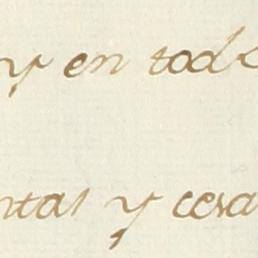 y en tod
ntas y cesa